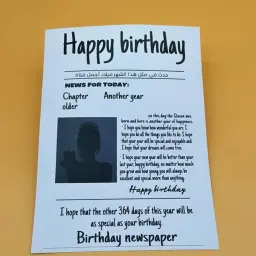 Happy birthday
حدث في مثل هذا الشهر ميلاد أجمل فتاة
NEWS FOR TODAY:
Chapter Another year
older
on this day the Queen was
born and here is another year of happiness.
I hope you know how wonderful you are. I
hope you do all the things you like to do. I hope
that your year will be special and enjoyable and
I hope that your dreams will come true.
I hope your new year will be better than your
last year, happy birthday, no matter how much
you grow and how young you will always be
excellent and special more than anything.
Happy birthday
I hope that the other 364 days of this year will be
as special as your birthday.
Birthday newspaper